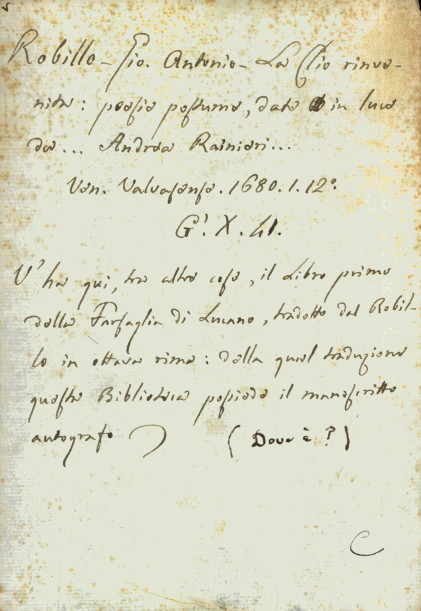 Robillo - Gio. Antonio - La Clio rinve-
nita: poesie postume, date in luce
da... Andrea Rainieri...
Ven. Valvasense. 1680. 1. 12°.
G'. X. 41.
V'ha qui, tra altre cose, il Libro primo
della Farsaglia di Lucano, tradotto dal Robil-
lo in ottava rima: della qual traduzione
questa Biblioteca possiede il manoscritto
autografo ) (Dove è?)
C